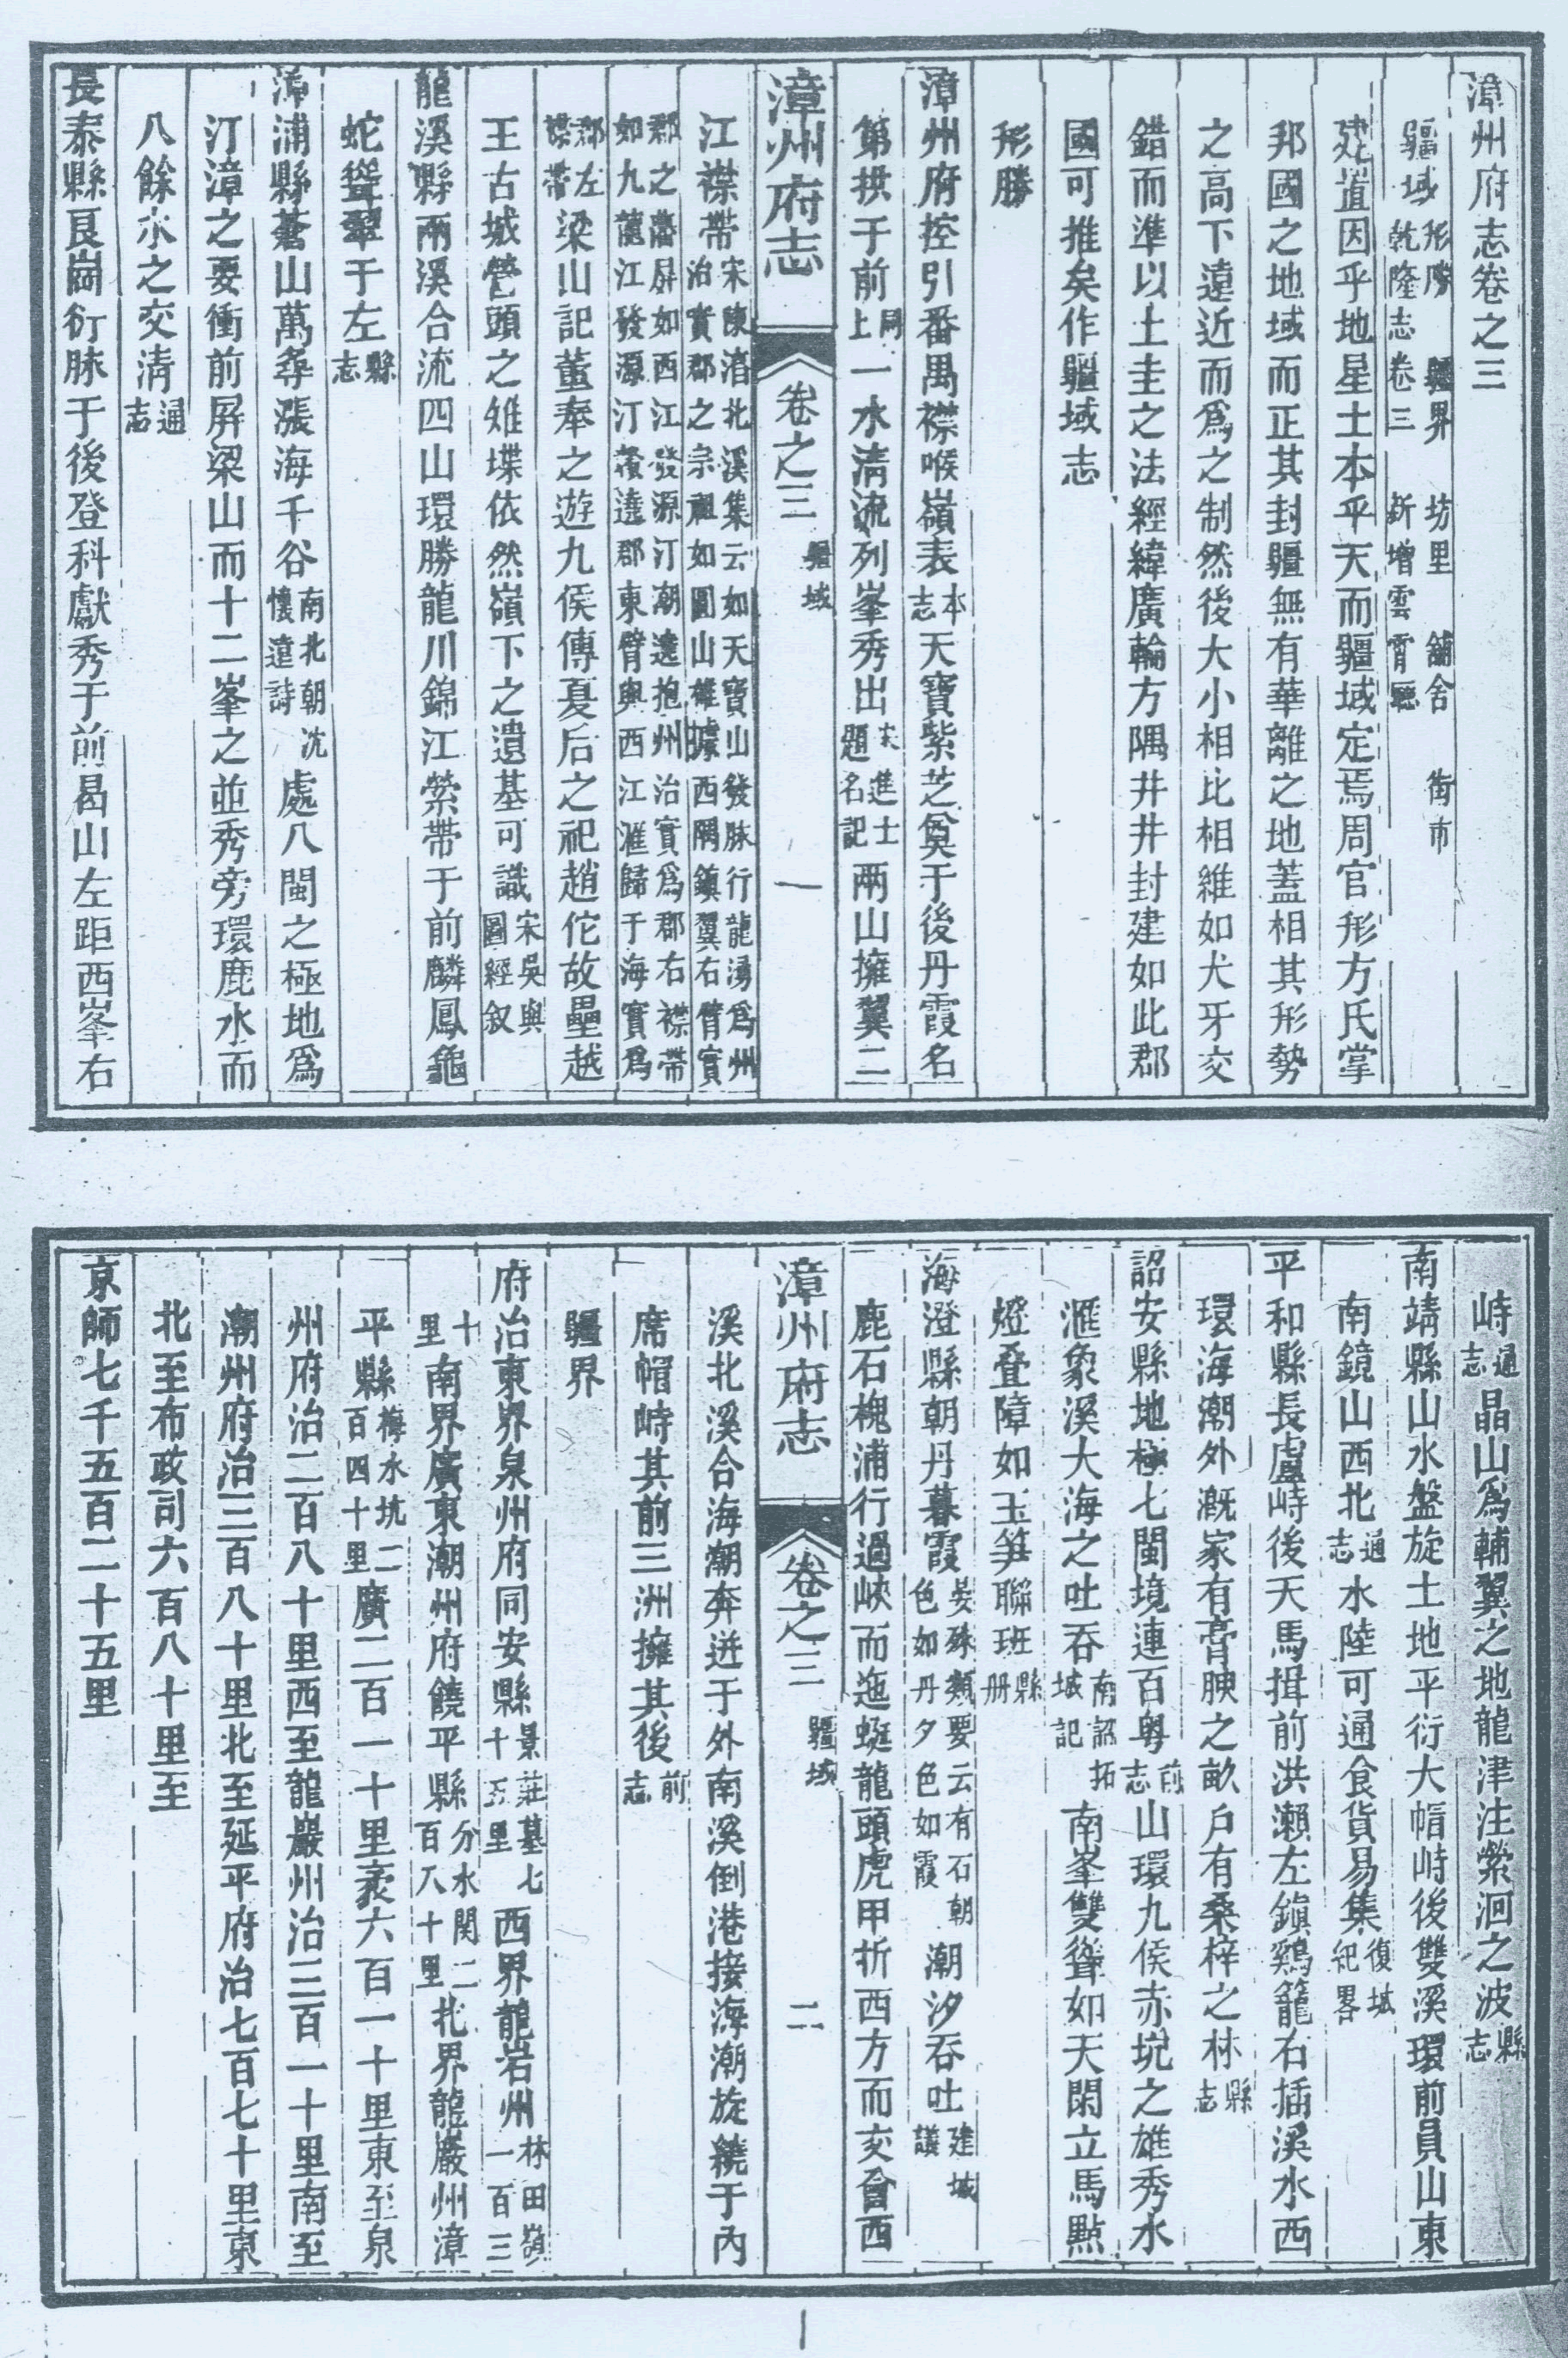 漳州府志卷之三
疆域 形勝 疆界 坊里 鋪舍 街市 乾隆志卷三 新增雲霄廳
建置因乎地星土本乎天而疆域定焉周官形方氏掌
邦國之地域而正其封疆無有華離之地蓋相其形勢
之高下遠近而爲之制然後大小相比相維如犬牙交
錯而準以土圭之法經緯廣輪方隅井井封建如此郡
國可推矣作疆域志
形勝
漳州府控引番禺襟喉嶺表本志天寶紫芝奠于後丹霞名
第拱于前同上一水清流列峯秀出宋進士題名記兩山擁翼二
漳州府志 卷之三 疆域 一
江襟帶宋陳淳北溪集云如天寶山發脉行龍湧爲州治實郡之宗祖如圓山雄據西隅鎮翼右臂實
郡之藩屏如西江發源汀潮遶抱州治實爲郡右襟帶如九龍江發源汀贛遶郡東臂與西江滙歸于海實爲
郡左襟帶梁山記董奉之遊九侯傳夏后之祀趙佗故壘越
王古城營頭之雉堞依然嶺下之遺基可識宋吳與圖經叙
龍溪縣兩溪合流四山環勝龍川錦江縈帶于前麟鳳龜
蛇聳翠于左縣志
漳浦縣蒼山萬尋漲海千谷南北朝沈懷遠詩處八閩之極地爲
汀漳之要衝前屏梁山而十二峯之並秀旁環鹿水而
八餘水之交淸通志
長泰縣良崗衍脉于後登科獻秀于前曷山左距西峯右
峙通志晶山爲輔翼之地龍津注縈洄之波縣志
南靖縣山水盤旋土地平衍大帽峙後雙溪環前員山東
南鏡山西北通志水陸可通食貨易集復城祀畧
平和縣長盧峙後天馬揖前洪瀨左鎭鷄籠右插溪水西
環海潮外漑家有膏腴之畝戶有桑梓之林縣志
詔安縣地極七閩境連百粵前志山環九侯赤坑之雄秀水
滙象溪大海之吐吞南詔拓城記南峯雙聳如天閑立馬點
燈叠障如玉笋聯班縣册
海澄縣朝丹暮霞晏殊類要云有石朝色如丹夕色如霞潮汐吞吐建城議
鹿石槐浦行過峽而迤蜒龍頭虎甲折西方而交會西
漳州府志 卷之三 疆域 二
溪北溪合海潮奔迸于外南溪倒港接海潮旋繞于內
席帽峙其前三洲擁其後前志
疆界
府治東界泉州府同安縣景莊墓七十五里西界龍岩州林田嶺一百三
十里南界廣東潮州府饒平縣分水関二百八十里北界龍巖州漳
平縣梅水坑二百四十里廣二百一十里袤六百一十里東至泉
州府治二百八十里西至龍巖州治三百一十里南至
潮州府治三百八十里北至延平府治七百七十里東
北至布政司六百八十里至
京師七千五百二十五里